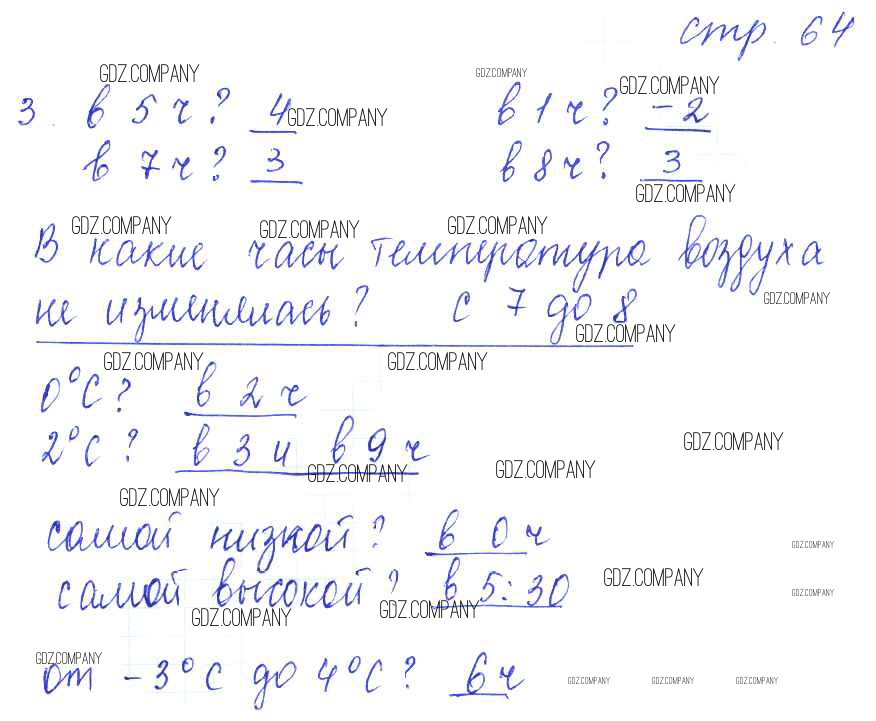 стр. 64
GDZ.COMPANY GDZ.COMPANY GDZ.COMPANY
3. в 5 ч? 4 GDZ.COMPANY в 1 ч? -2
в 7 ч? 3 в 8 ч? 3
GDZ.COMPANY
GDZ.COMPANY GDZ.COMPANY GDZ.COMPANY
В какие часы температура воздуха
GDZ.COMPANY
не изменялась? с 7 до 8
GDZ.COMPANY
GDZ.COMPANY GDZ.COMPANY
0°С? в 2 ч
2°С? в 3 и в 9 ч
GDZ.COMPANY
GDZ.COMPANY GDZ.COMPANY
GDZ.COMPANY
самой низкой? в 0 ч
GDZ.COMPANY
самой высокой? в 5:30
GDZ.COMPANY GDZ.COMPANY
GDZ.COMPANY GDZ.COMPANY
GDZ.COMPANY
от -3°С до 4°С? 6 ч
GDZ.COMPANY GDZ.COMPANY GDZ.COMPANY